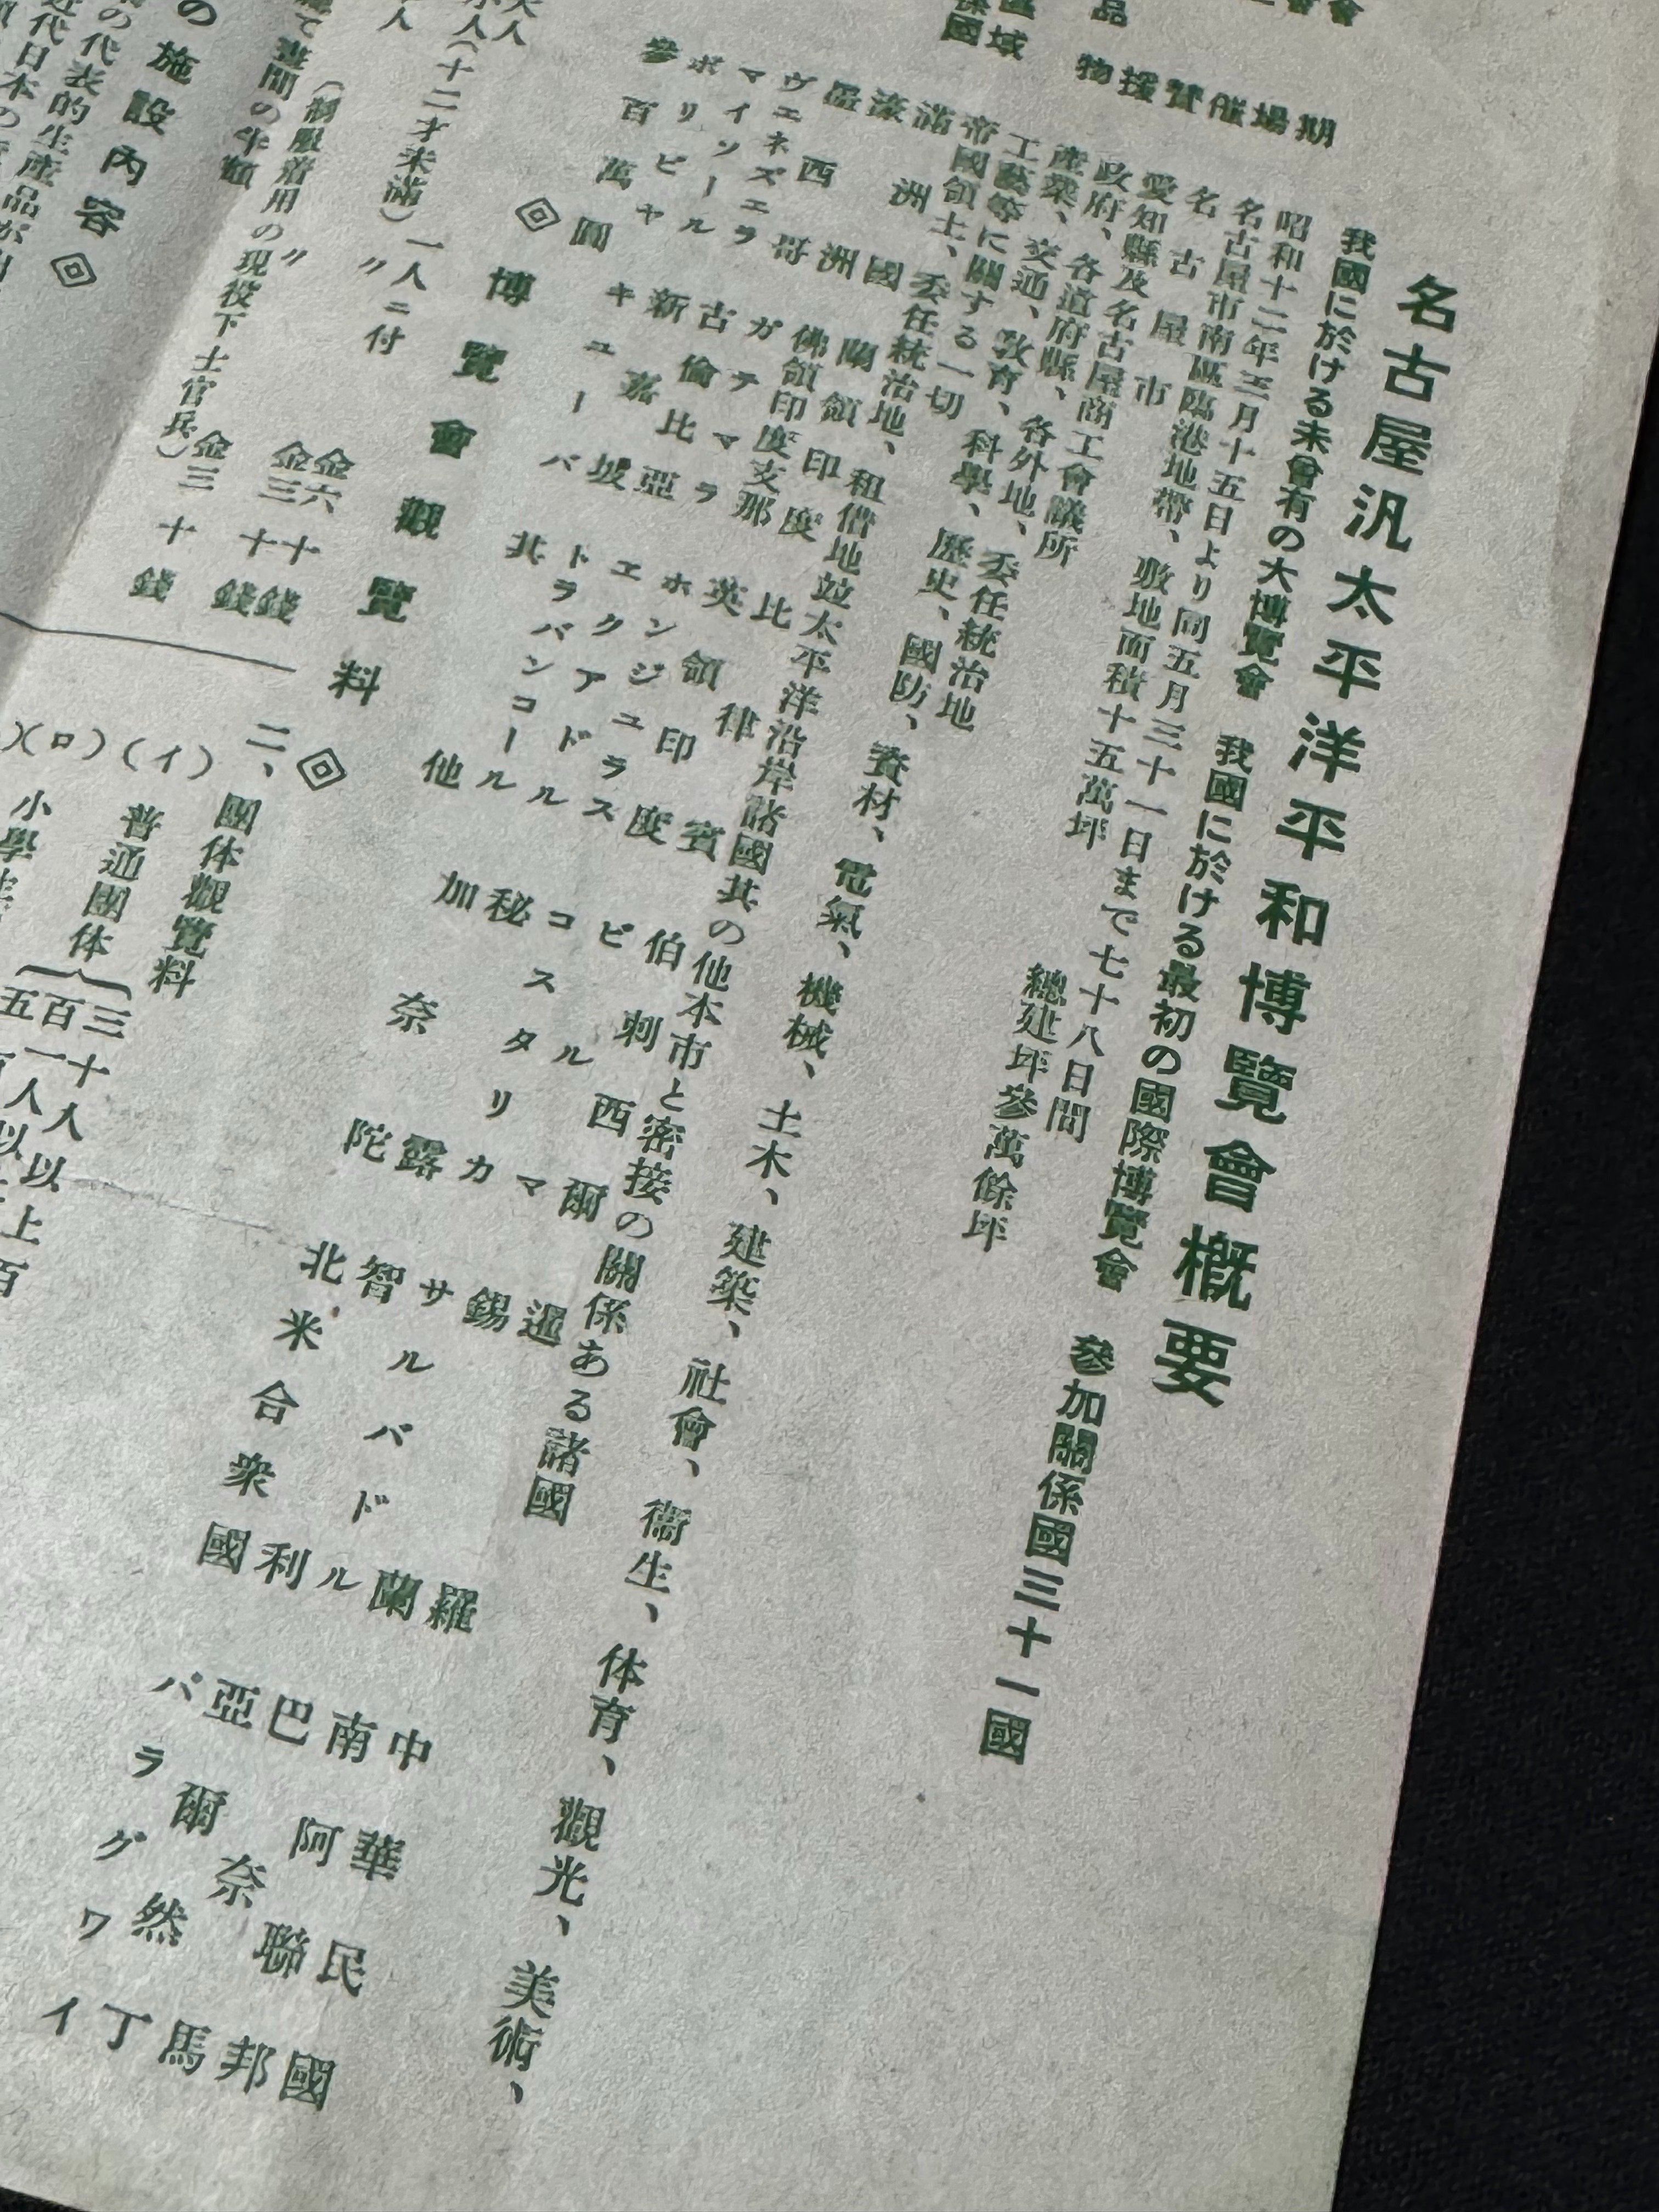 名古屋汎太平洋平和博覽會概要
我國に於ける未曾有の大博覽會　我國に於ける最初の國際博覽會　參加關係國三十一國
期　昭和十二年三月十五日より同五月三十一日まで七十八日間
場　名古屋市南區臨港地帶、敷地面積十五萬坪　總建坪參萬餘坪
催　名古屋市
贊　愛知縣及名古屋商工會議所
援　政府、各道府縣、各外地、委任統治地
物　產業、交通、敎育、科學、歷史、國防、資材、電氣、機械、土木、建築、社會、衞生、体育、觀光、美術、
品　工藝等に關する一切
區域　帝國領土、委任統治地、租借地竝太平洋沿岸諸國其の他本市と密接の關係ある諸國
國　滿洲國　蘭領印度　比律賓　伯剌西爾　暹羅　中華民國
濠洲　佛領印度支那　英領印度　ビルマ　錫蘭　南阿聯邦
墨西哥　ガテマラ　ホンジユラス　コスタリカ　サルバドル　巴奈馬
ヴエネズエラ　古倫比亞　エクアドル　秘露　智利　亞爾然丁
マイソール　新嘉坡　トラバンコール　加奈陀　北米合衆國　パラグワイ
ボリビヤ　キユーバ　其他
參百萬圓
◇博覽會觀覽料◇
大人　一人ニ付　金六十錢
小人（十二才未滿）　〃　金三十錢
人（制服着用の現役下士官兵）　〃　金三十錢
て晝間の半額
二、團体觀覽料
（イ）普通團体　三十人以上
百一人以上
（ロ）小學
の施設內容◇
の代表的生產品が
近代日本の